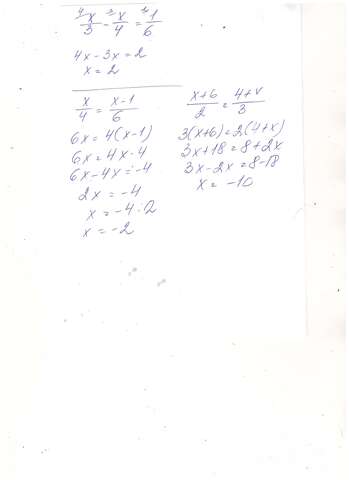 ⁴x/3 - ³x/4 = ²1/6
4x - 3x = 2
x = 2
x/4 = x-1/6
6x = 4(x-1)
6x = 4x - 4
6x - 4x = -4
2x = -4
x = -4 : 2
x = -2
x+6/2 = 4+x/3
3(x+6) = 2(4+x)
3x + 18 = 8 + 2x
3x - 2x = 8 - 18
x = -10